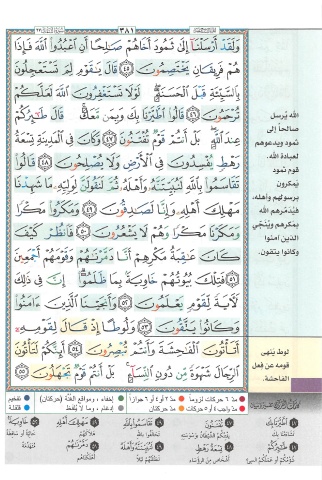 ٣٨١
وَلَقَدْ أَرْسَلْنَآ إِلَىٰ ثَمُودَ أَخَاهُمْ صَٰلِحًا أَنِ ٱعْبُدُوا۟ ٱللَّهَ فَإِذَا
هُمْ فَرِيقَانِ يَخْتَصِمُونَ ٤٥ قَالَ يَٰقَوْمِ لِمَ تَسْتَعْجِلُونَ
بِٱلسَّيِّئَةِ قَبْلَ ٱلْحَسَنَةِ لَوْلَا تَسْتَغْفِرُونَ ٱللَّهَ لَعَلَّكُمْ
تُرْحَمُونَ ٤٦ قَالُوا۟ ٱطَّيَّرْنَا بِكَ وَبِمَن مَّعَكَ قَالَ طَٰٓئِرُكُمْ
عِندَ ٱللَّهِ بَلْ أَنتُمْ قَوْمٌ تُفْتَنُونَ ٤٧ وَكَانَ فِى ٱلْمَدِينَةِ تِسْعَةُ
رَهْطٍ يُفْسِدُونَ فِى ٱلْأَرْضِ وَلَا يُصْلِحُونَ ٤٨ قَالُوا۟
تَقَاسَمُوا۟ بِٱللَّهِ لَنُبَيِّتَنَّهُۥ وَأَهْلَهُۥ ثُمَّ لَنَقُولَنَّ لِوَلِيِّهِۦ مَا شَهِدْنَا
مَهْلِكَ أَهْلِهِۦ وَإِنَّا لَصَٰدِقُونَ ٤٩ وَمَكَرُوا۟ مَكْرًا
وَمَكَرْنَا مَكْرًا وَهُمْ لَا يَشْعُرُونَ ٥٠ فَٱنظُرْ كَيْفَ
كَانَ عَٰقِبَةُ مَكْرِهِمْ أَنَّا دَمَّرْنَٰهُمْ وَقَوْمَهُمْ أَجْمَعِينَ
٥١ فَتِلْكَ بُيُوتُهُمْ خَاوِيَةًۢ بِمَا ظَلَمُوٓا۟ إِنَّ فِى ذَٰلِكَ
لَءَايَةً لِّقَوْمٍ يَعْلَمُونَ ٥٢ وَأَنجَيْنَا ٱلَّذِينَ ءَامَنُوا۟
وَكَانُوا۟ يَتَّقُونَ ٥٣ وَلُوطًا إِذْ قَالَ لِقَوْمِهِۦٓ
أَتَأْتُونَ ٱلْفَٰحِشَةَ وَأَنتُمْ تُبْصِرُونَ ٥٤ أَئِنَّكُمْ لَتَأْتُونَ
ٱلرِّجَالَ شَهْوَةً مِّن دُونِ ٱلنِّسَآءِ بَلْ أَنتُمْ قَوْمٌ تَجْهَلُونَ ٥٥
الله يُرسل
صالحاً إلى
ثمود ويدعوهم
لعبادة الله.
قوم ثمود
يَمكرون
برسولهم وأهله،
فيُدَمّرهم الله
بمكرهم ويُنَجّي
الذين آمنوا
وكانوا يتقون.
لوط يَنهى
قومه عن فعل
الفاحشة.
مدّ ٦ حركات لزوماً
مدّ ٢ أو ٤ أو ٦ جوازاً
إخفاء، ومواقع الغُنّة (حركتان)
تفخيم
مدّ واجب ٤ أو ٥ حركات
مدّ حركتان
إدغام، وما لا يُلفظ
قلقلة